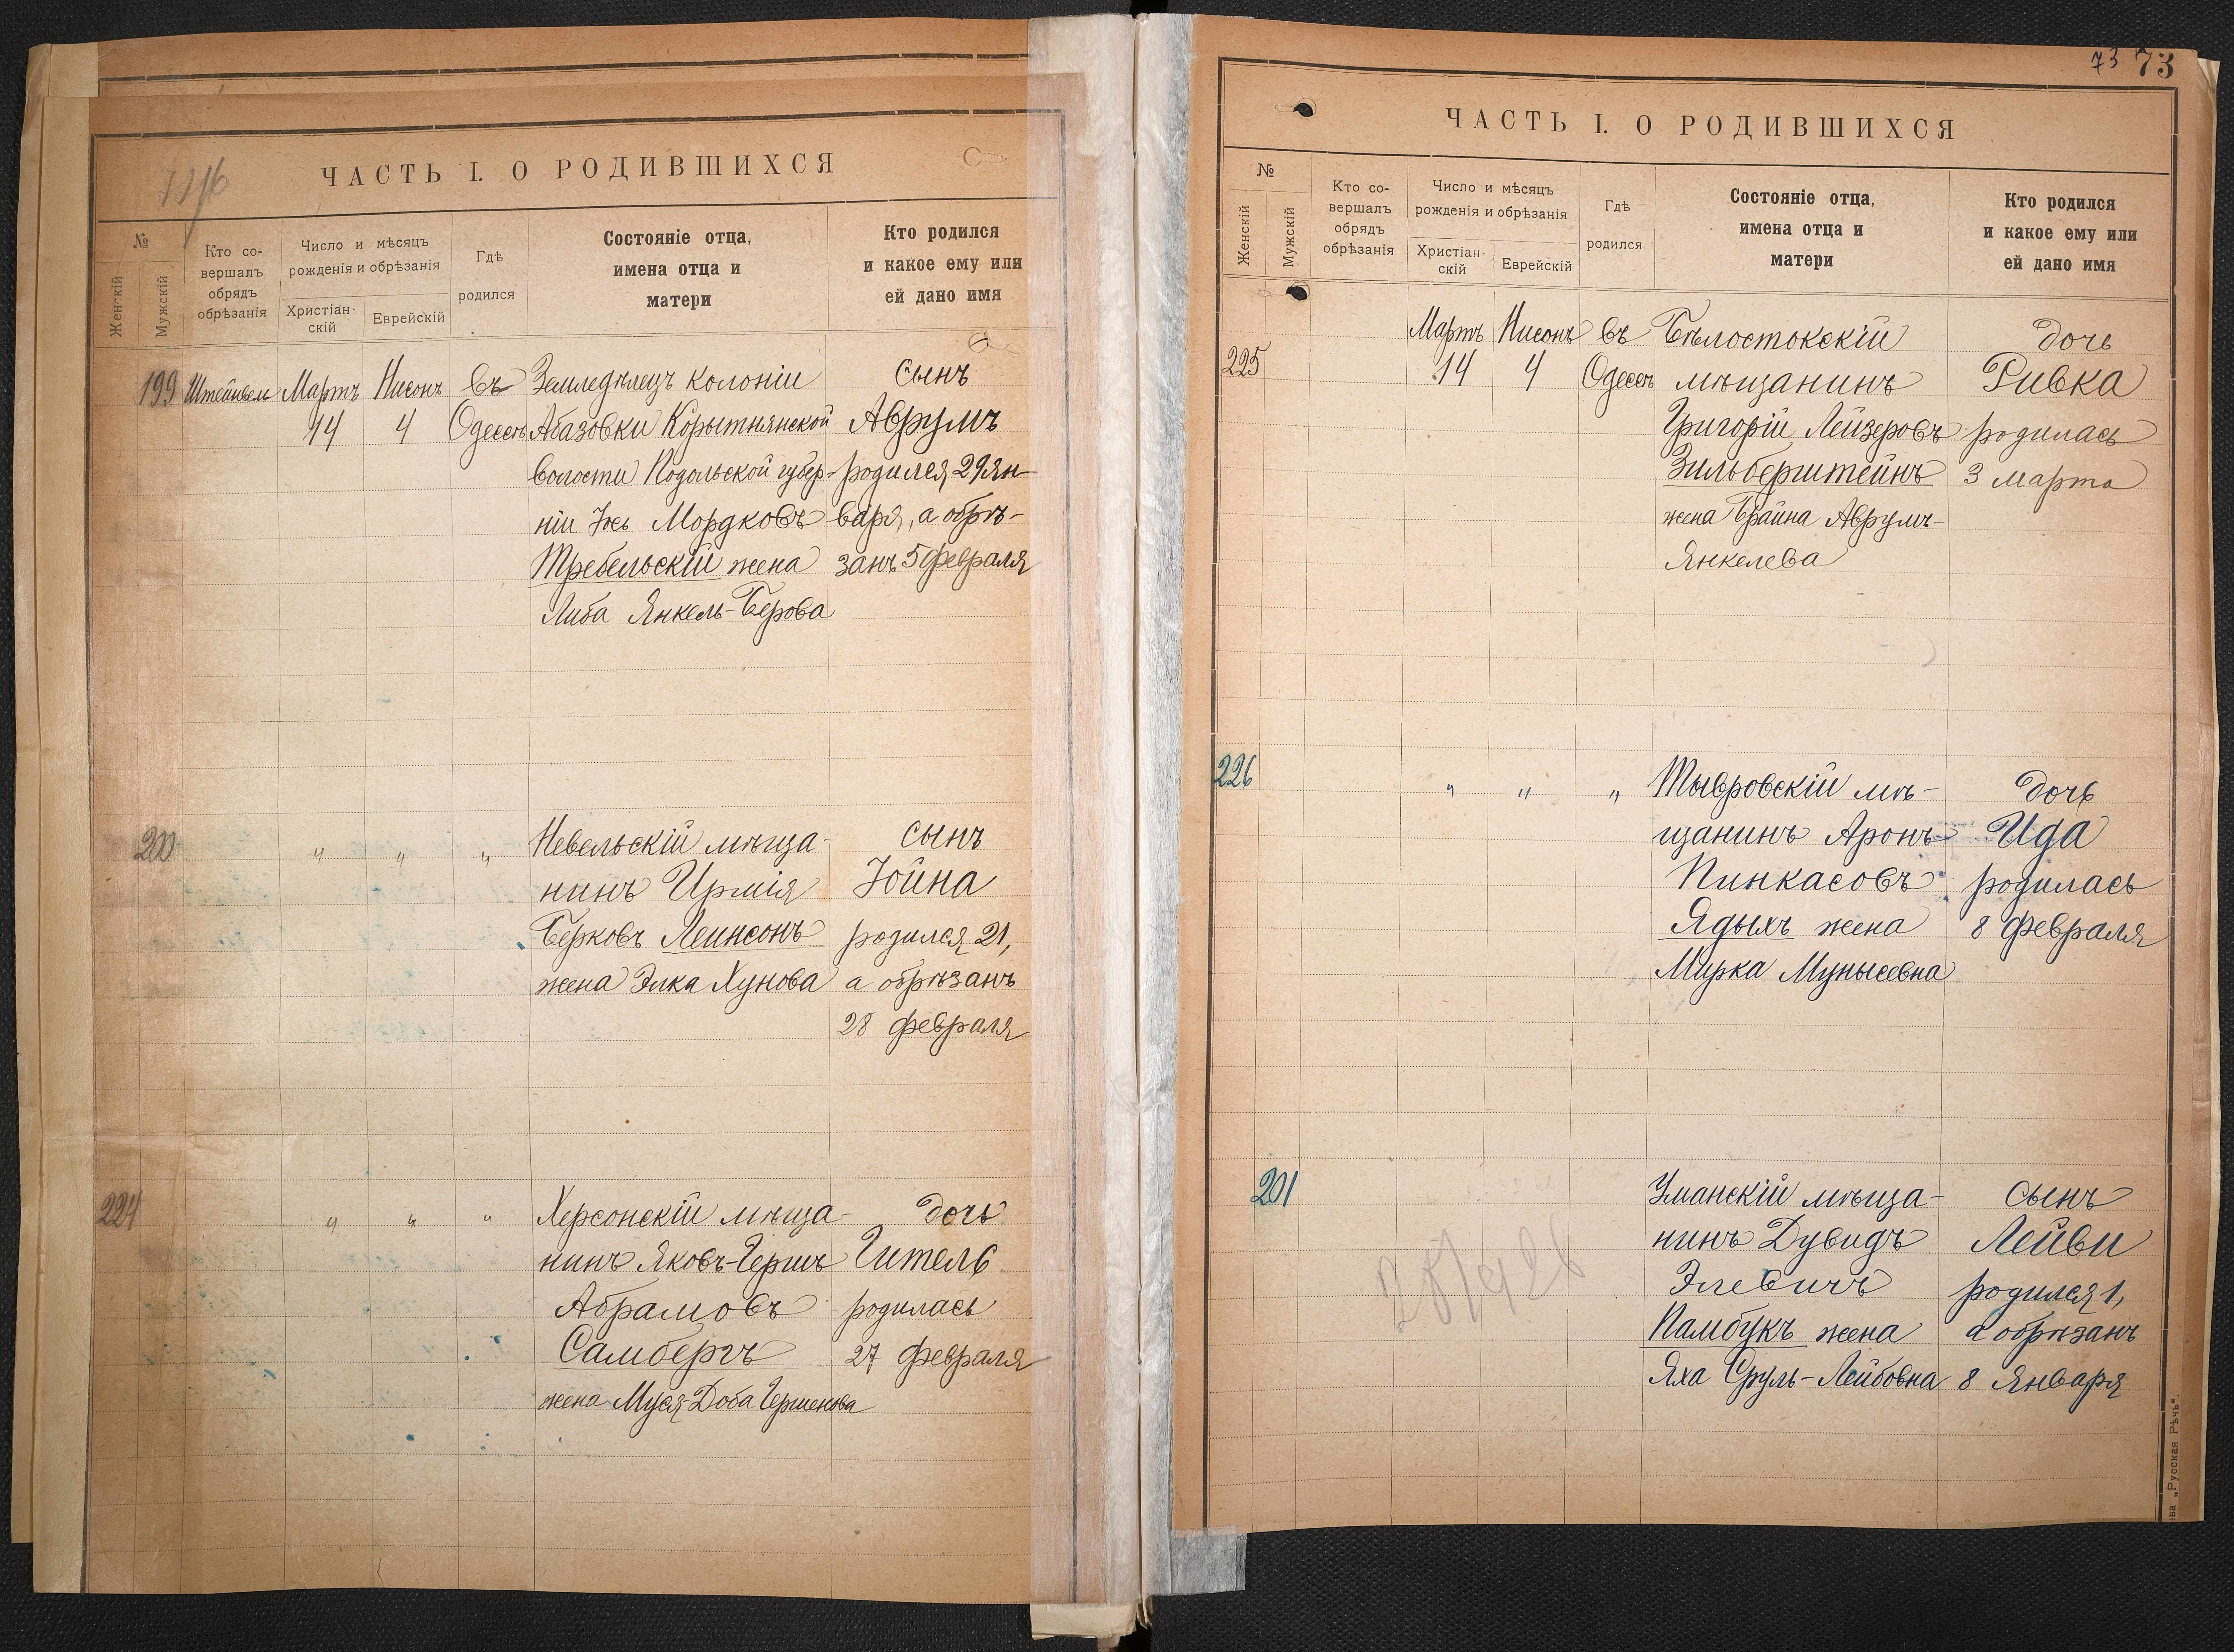 ЧАСТЬ I. О РОДИВШИХСЯ
№
Женскій
Мужскій
Кто со-
вершалъ
обрядъ
обрѣзанія
Число и мѣсяцъ
рожденія и обрѣзанія
Христіан-
скій
Еврейскій
Гдѣ
родился
Состояніе отца,
имена отца и
матери
Кто родился
и какое ему или
ей дано имя
199 Мартъ Нисонъ въ Земледѣлецъ колоніи сынъ
14 4 Одессѣ Абазовки Корытнянской Аврумъ
волости Подольской губер- родился 29 Ян-
ніи Іось Мордковъ варя, а обрѣ-
Требельскій жена занъ 5 Февраля
Либа Янкель-Берова
200 " " " Невельскій мѣща- сынъ
нинъ Ирмія Іойна
Берковъ Леинсонъ родился 21,
жена Элка Хунова а обрѣзанъ
28 февраля
224 " " " Херсонскій мѣща- дочь
нинъ Яковъ-Гершъ Гитель
Абрамовъ родилась
Самбергъ 27 февраля
жена Муся-Доба Гершенова
73 73
ЧАСТЬ I. О РОДИВШИХСЯ
№
Женскій
Мужскій
Кто со-
вершалъ
обрядъ
обрѣзанія
Число и мѣсяцъ
рожденія и обрѣзанія
Христіан-
скій
Еврейскій
Гдѣ
родился
Состояніе отца,
имена отца и
матери
Кто родился
и какое ему или
ей дано имя
Мартъ Нисонъ въ Бѣлостокскій дочь
225 14 4 Одессѣ мѣщанинъ Ривка
Григорій Лейзеровъ родилась
Зильберштейнъ 3 марта
жена Брайна Аврумъ-
Янкелева
226 " " " Тывровскій мѣ- дочь
щанинъ Аронъ Ида
Пинкасовъ родилась
Ядыхъ жена 8 февраля
Мирка Мунысовна
201 Уманскій мѣща- сынъ
нинъ Дувидъ Лейви
Элевичъ родился 1,
Памбукъ жена а обрѣзанъ
Яха Сруль-Лейбовна 8 Января
ва „Русская Рѣчь“.